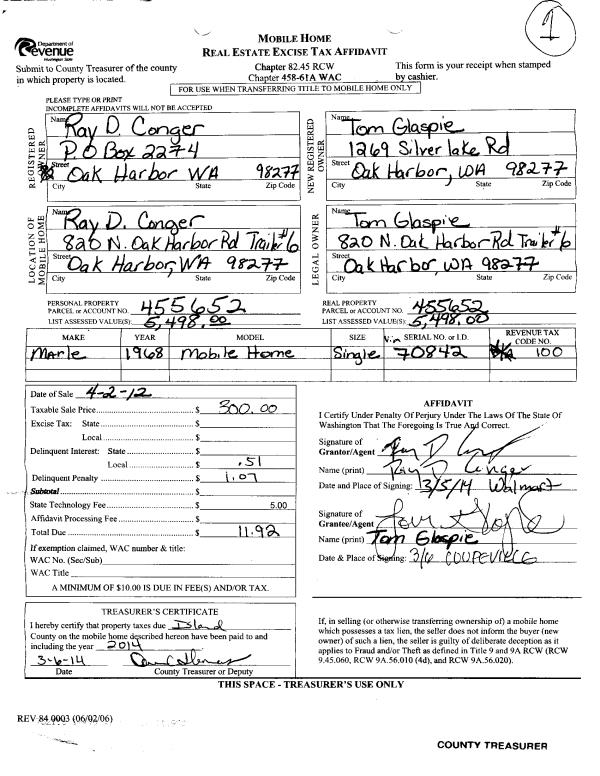 1
Department of
Revenue
Washington State
MOBILE HOME
REAL ESTATE EXCISE TAX AFFIDAVIT
Submit to County Treasurer of the county
in which property is located.
Chapter 82.45 RCW
Chapter 458-61A WAC
This form is your receipt when stamped
by cashier.
FOR USE WHEN TRANSFERRING TITLE TO MOBILE HOME ONLY
PLEASE TYPE OR PRINT
INCOMPLETE AFFIDAVITS WILL NOT BE ACCEPTED
REGISTERED OWNER
Name Ray D. Conger
P.O Box 2274
Street
Oak Harbor WA 98277
City State Zip Code
NEW REGISTERED OWNER
Name Tom Glaspie
1269 Silver lake Rd
Street
Oak Harbor, WA 98277
City State Zip Code
LOCATION OF MOBILE HOME
Name Ray D. Conger
820 N. Oak Harbor Rd Trailer #6
Street
Oak Harbor, WA 98277
City State Zip Code
LEGAL OWNER
Name Tom Glaspie
820 N. Oak Harbor Rd Trailer #6
Street
Oak Harbor, WA 98277
City State Zip Code
PERSONAL PROPERTY
PARCEL or ACCOUNT NO. 455652
LIST ASSESSED VALUE(S): 5,498.00
REAL PROPERTY
PARCEL or ACCOUNT NO. 455652
LIST ASSESSED VALUE(S): 5,498.00
MAKE YEAR MODEL SIZE Vin SERIAL NO. or I.D. REVENUE TAX CODE NO.
Marle 1968 Mobile Home Single 70842 100
Date of Sale 4-2-12
Taxable Sale Price $ 300.00
Excise Tax: State $
Local $
Delinquent Interest: State $
Local $ .51
Delinquent Penalty $ 1.07
Subtotal $
State Technology Fee $ 5.00
Affidavit Processing Fee $
Total Due $ 11.92
If exemption claimed, WAC number & title:
WAC No. (Sec/Sub)
WAC Title
A MINIMUM OF $10.00 IS DUE IN FEE(S) AND/OR TAX.
AFFIDAVIT
I Certify Under Penalty Of Perjury Under The Laws Of The State Of
Washington That The Foregoing Is True And Correct.
Signature of
Grantor/Agent
Name (print) Ray D Conger
Date and Place of Signing: 3/5/14 Walmart
Signature of
Grantee/Agent
Name (print) Tom Glaspie
Date & Place of Signing: 3/6 COUPEVILLE
TREASURER'S CERTIFICATE
I hereby certify that property taxes due Island
County on the mobile home described hereon have been paid to and
including the year 2014
3-6-14
Date County Treasurer or Deputy
If, in selling (or otherwise transferring ownership of) a mobile home
which possesses a tax lien, the seller does not inform the buyer (new
owner) of such a lien, the seller is guilty of deliberate deception as it
applies to Fraud and/or Theft as defined in Title 9 and 9A RCW (RCW
9.45.060, RCW 9A.56.010 (4d), and RCW 9A.56.020).
THIS SPACE - TREASURER'S USE ONLY
REV 84 0003 (06/02/06)
COUNTY TREASURER